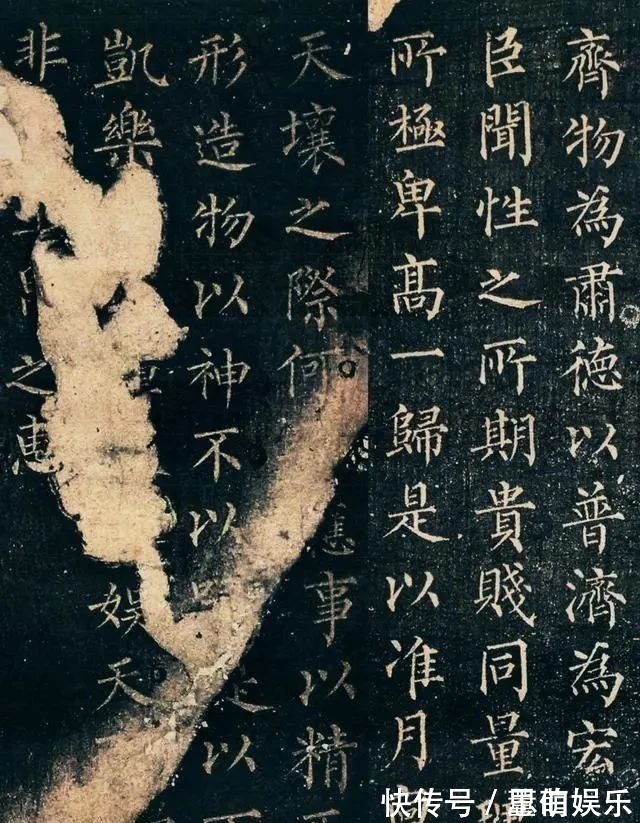 齊物為肅德以普濟為宏
臣聞性之所期貴賤同量
所極卑高一歸是以准月
天壤之際何 事以精
形造物以神不以 是以
凱樂 娛天
非 之惠
快传号 / 墨萌娱乐